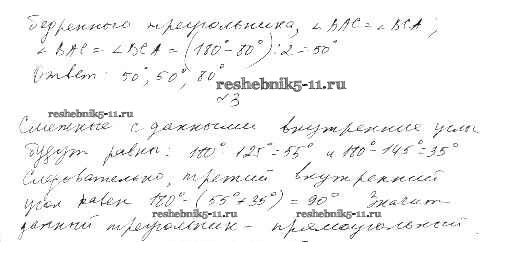 бедренного треугольника, ∠ BAC = ∠ BCA;
∠ BAC = ∠ BCA = (180° - 80°) : 2 = 50°
Ответ: 50°, 50°, 80°
reshebnik5-11.ru
№3
reshebnik5-11.ru
Смежные с данными внутренние углы
будут равны: 180° 125° = 55° и 180° - 145° = 35°
Следовательно, третий внутренний
угол равен 180° - (55° + 35°) = 90° Значит
reshebnik5-11.ru reshebnik5-11.ru
данный треугольник - прямоугольный.